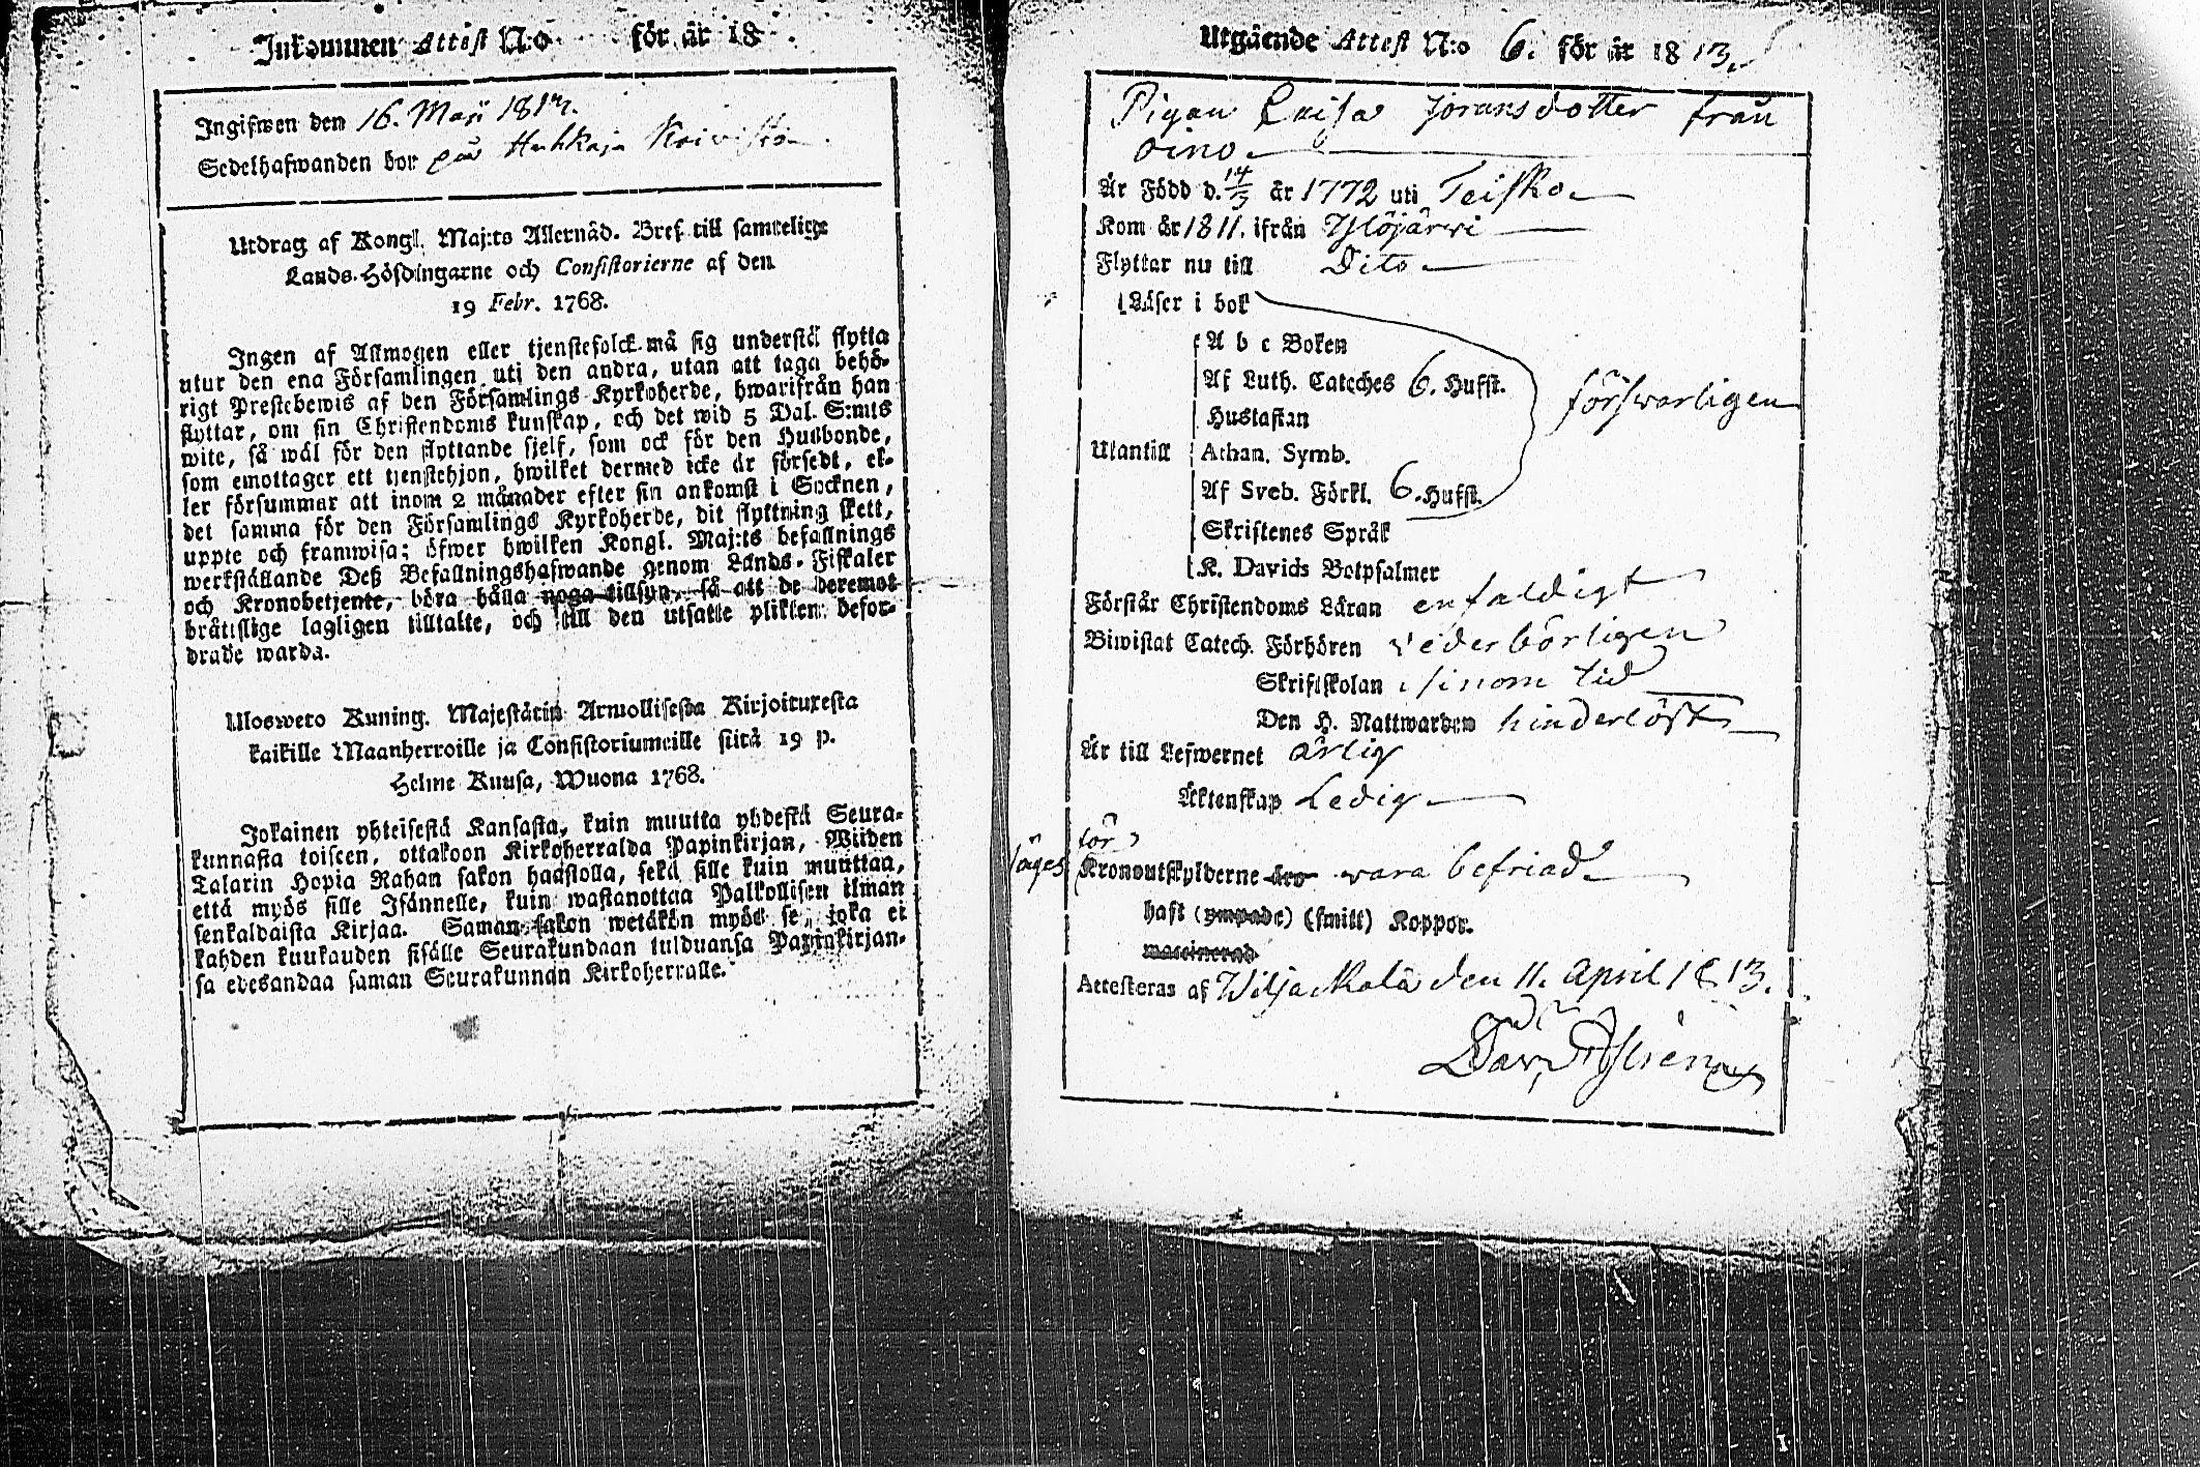 Inkommen Attest N:o för år 18
Ingifwen den 16. Maji 1813.
Sedelhafwanden bor på Huhkaja Koivisto
Utdrag af Kongl. Maj:ts Allernåd. Bref till samtelige
Lands-Höfdingarne och Consistorierne af den
19 Febr. 1768.
Ingen af Allmogen eller tjenstefolck må sig understå flytta
utur den ena Församlingen uti den andra, utan att taga behö-
rigt Prestebewis af den Församlings Kyrkoherde, hwarifrån han
flyttar, om sin Christendoms kunskap, och det wid 5 Dal. S:mts
wite, så wäl för den flyttande sjelf, som ock för den Husbonde,
som emottager ett tjenstehjon, hwilket dermed icke är försedt, el-
ler försummar att inom 2 månader efter sin ankomst i Socknen,
det samma för den Församlings Kyrkoherde, dit flyttning skett,
uppte och framwisa; öfwer hwilken Kongl. Maj:ts befallnings
werkställande Deß Befallningshafwande genom Lands-Fiskaler
och Kronobetjente, böra hålla noga tillsyn, så att de deremot
bråttslige lagligen tilltalte, och till den utsatte plikten befor-
drade warda.
Ulosweto Kuning. Majestätin Armollisesta Kirjoituxesta
kaikille Maanherroille ja Consistoriumeille siitä 19 p.
Helme Kuusa, Wuona 1768.
Jokainen yhteisestä Kansasta, kuin muutta yhdestä Seura-
kunnasta toiseen, ottakoon Kirkoherralda Papinkirjan, Wiiden
Talarin Hopia Rahan sakon haastolla, sekä sille kuin muuttaa,
että myös sille Isännelle, kuin wastanottaa Palkollisen ilman
senkaldaista Kirjaa. Saman sakon wetäkön myös se, joka ei
kahden kuukauden sisälle Seurakundaan tulduansa Papinkirjan-
sa edesandaa saman Seurakunnan Kirkoherralle.
Utgående Attest N:o 6. för år 1813.
Pigan Caisa Joransdotter från
Oino
Är Född d. 14/3 år 1772 uti Teisko
Kom år 1811. ifrån Ylöjärwi
Flyttar nu till Dito
Läser i bok
A b c Boken
Af Luth. Cateches 6. Hufst.
försvarligen
Hustaflan
Utantill Athan. Symb.
Af Sveb. Förkl. 6. Hufst.
Skriftenes Språk
K. Davids Botpsalmer
Förstår Christendoms Läran enfaldigt
Biwistat Catech. Förhören vederbörligen
Skriftskolan i sinom tid
Den H. Nattwarden hinderlöst
Är till Lefwernet ärlig
Äktenskap Ledig
för
säges Kronoutskylderne äro wara befriad
haft (ympade) (smitt) Koppor.
vaccinerad
Attesteras af Wiljakkala den 11. April 1813.